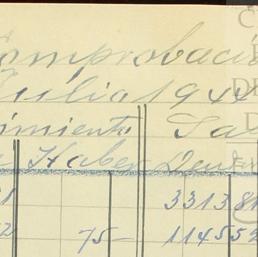 Comprobaci
Julio 1944
imiento Sal
Haber Deu
1 3313 81
2 75- 1145 52